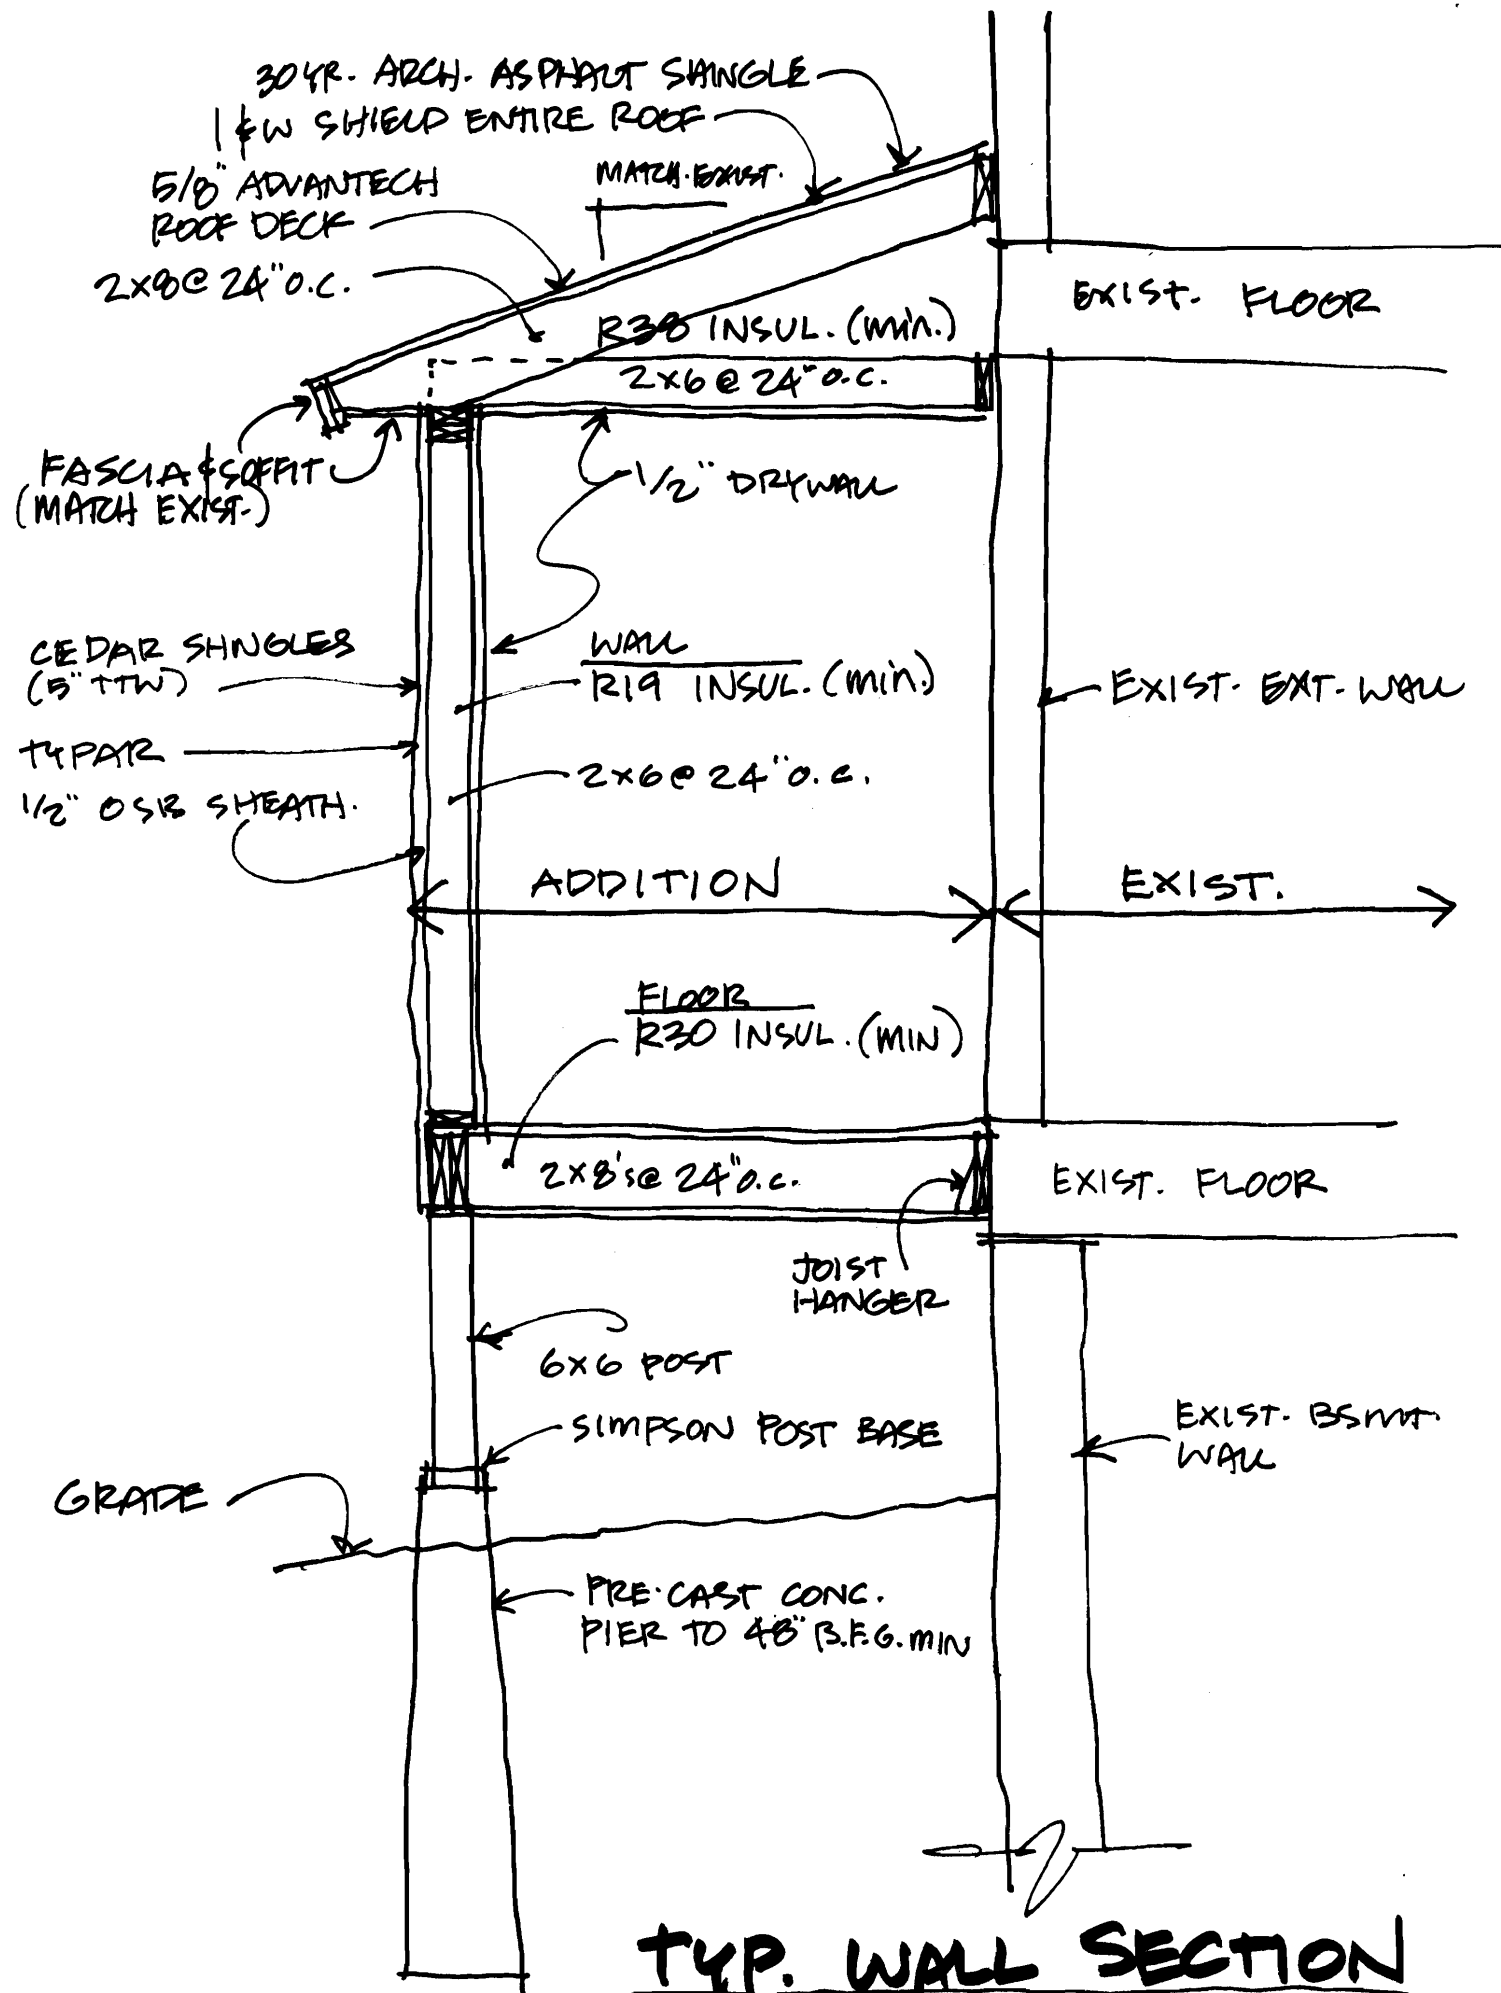 30 YR. ARCH. ASPHALT SHINGLE
I & W SHIELD ENTIRE ROOF
5/8" ADVANTECH
ROOF DECK
MATCH. EXIST.
2x8 @ 24" O.C.
EXIST. FLOOR
R38 INSUL. (min.)
2x6 @ 24" O.C.
FASCIA & SOFFIT
(MATCH EXIST.)
1/2" DRYWALL
CEDAR SHNGLES
(5" TTW)
WALL
R19 INSUL. (min.)
EXIST. EXT. WALL
TYPAR
2x6 @ 24" O.C.
1/2" OSB SHEATH.
ADDITION
EXIST.
FLOOR
R30 INSUL. (MIN)
2x8's @ 24" O.C.
EXIST. FLOOR
JOIST
HANGER
6x6 POST
SIMPSON POST BASE
EXIST. BSMT.
WALL
GRADE
PRE-CAST CONC.
PIER TO 48" B.F.G. MIN
TYP. WALL SECTION